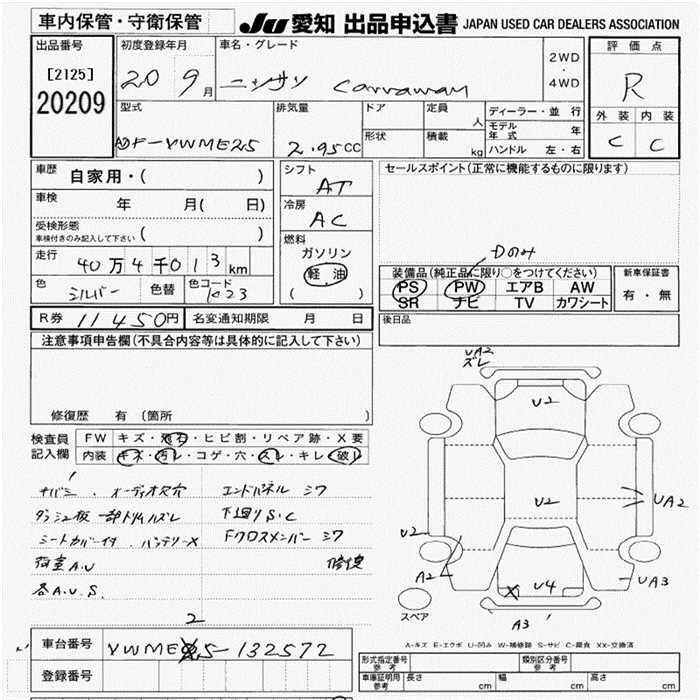 車内保管・守衛保管
JU 愛知 出品申込書 JAPAN USED CAR DEALERS ASSOCIATION
出品番号
[2125]
20209
初度登録年月
20 9月
車名・グレード
ニッサン carravan
2WD
・
4WD
評価点
R
外装 内装
C C
型式
ADF-VWME25
排気量
2.95CC
ドア
形状
定員
人
積載
kg
ディーラー・並行
モデル年式 年
ハンドル 左・右
車歴
自家用・( )
車検
年 月( 日)
受検形態
車検付きのみ記入して下さい ( )
走行
40万4千013km
色
シルバー
色替
色コード
K23
シフト
AT
冷房
AC
燃料
ガソリン
軽油
( )
セールスポイント(正常に機能するものに限ります)
Dのみ
装備品(純正品に限り○をつけてください)
PS PW エアB AW
SR ナビ TV カワシート
新車保証書
有・無
R券 11450円
名変通知期限 月 日
後日品
注意事項申告欄(不具合内容等は具体的に記入して下さい)
修復歴 有 (箇所
検査員
記入欄
FW キズ・飛石・ヒビ割・リペア跡・X要
内装 キズ・汚レ・コゲ・穴・スレ・キレ・破レ
ナバミ . オーディオ穴
エンドパネル シワ
ダッシュ板一部トリムハズレ
下廻りS.C
シートカバー付 . バッテリーX
Fクロスメンバー シワ
荷室A.U
修復
各A.U.S.
UA2
ズレ
U2
U2
UA2
U2
A2
X
U4
UA3
A3
スペア
A-キズ E-エクボ U-凹み W-補修跡 S-サビ C-腐食 XX-交換済
2
車台番号
VWME25-132572
登録番号
形式指定番号
参考
類別区分番号
参考
車庫証明用
参考
長さ cm
幅 cm
高さ cm